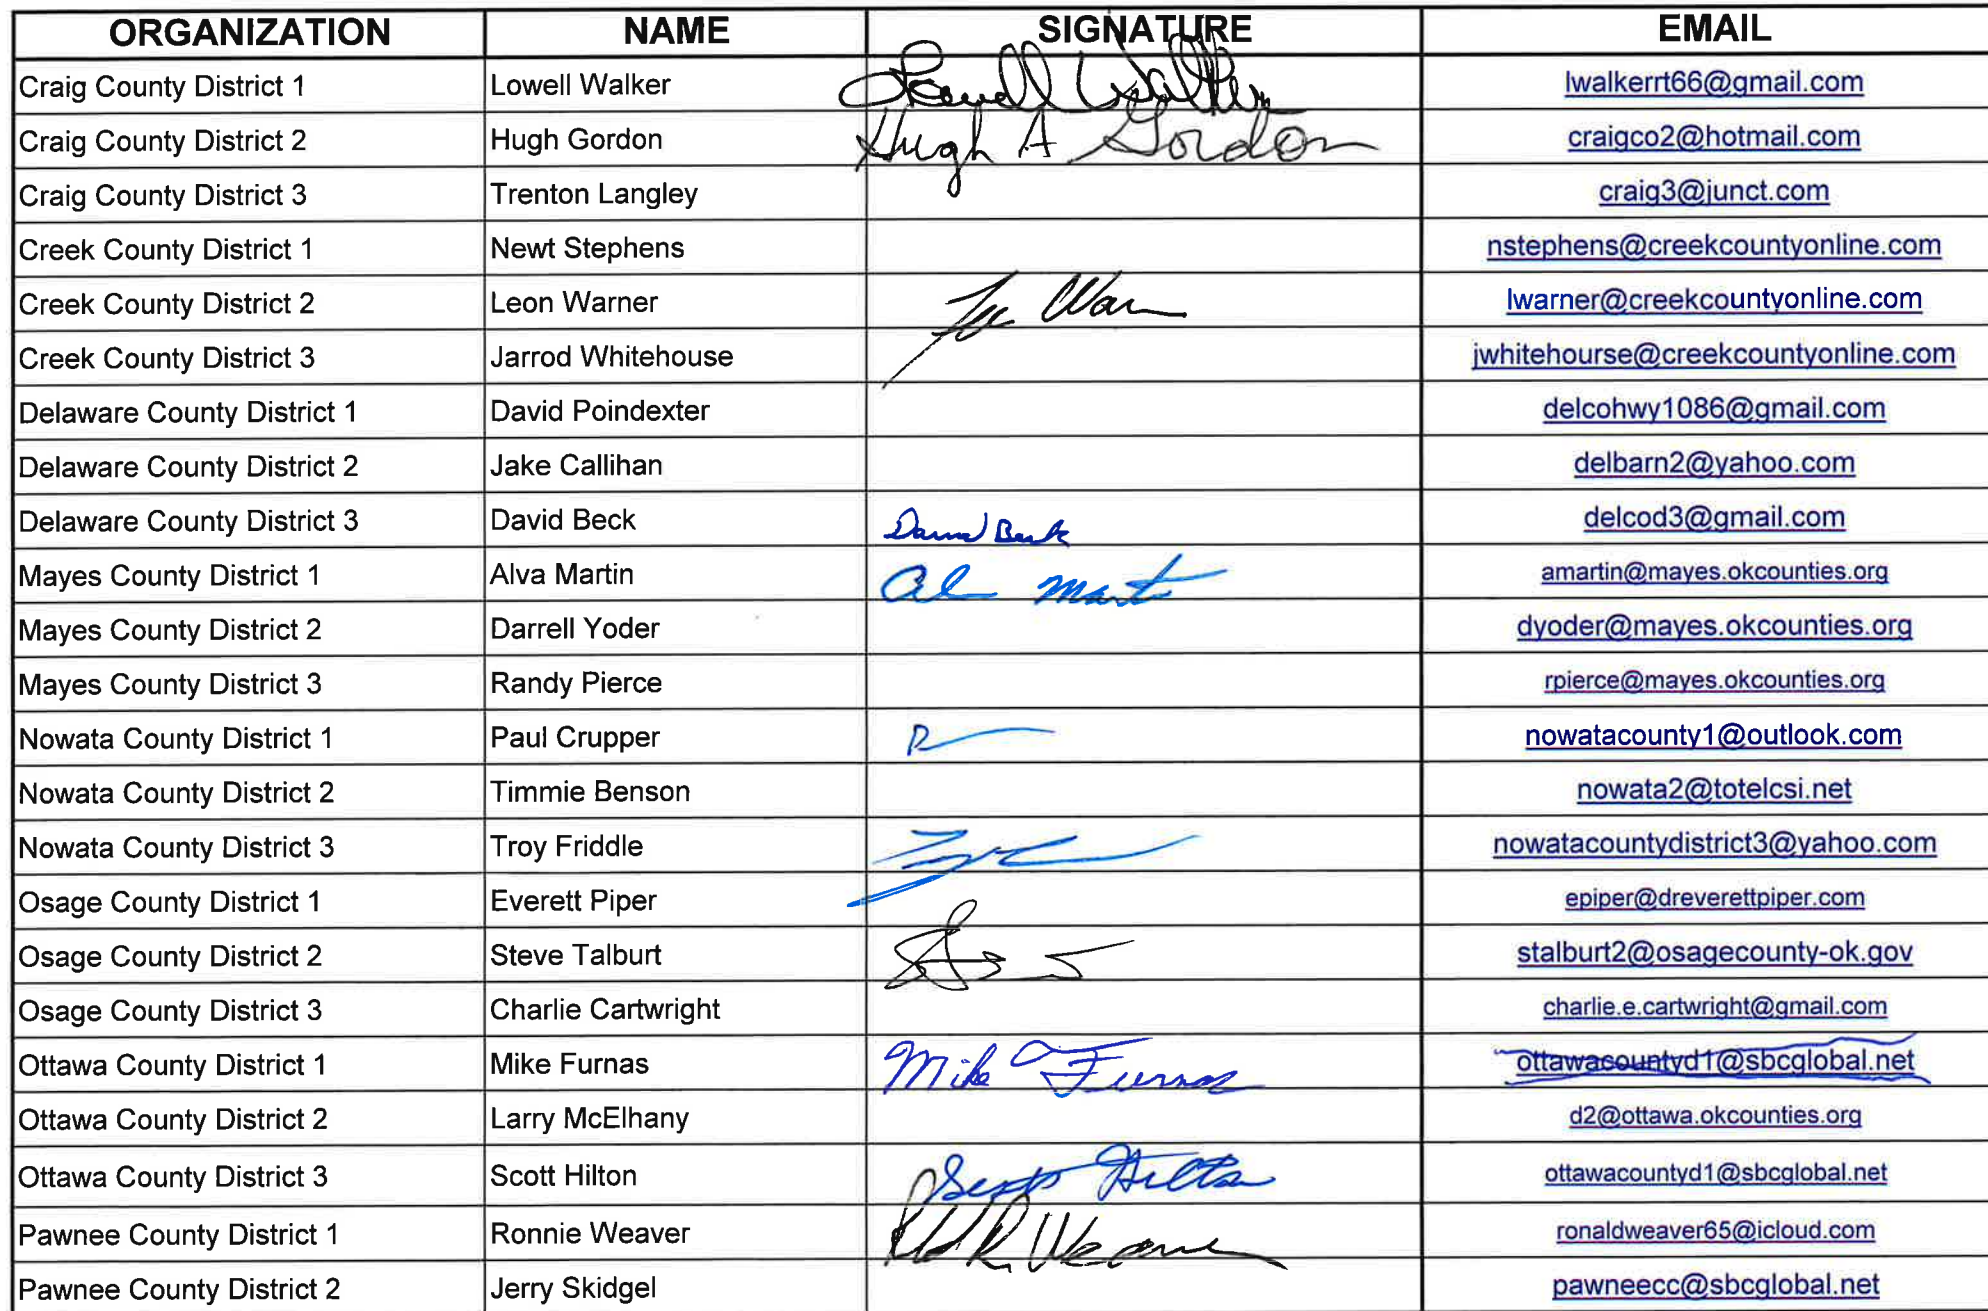 ORGANIZATION NAME SIGNATURE EMAIL
Craig County District 1 Lowell Walker Lowell Walker lwalkerrt66@gmail.com
Craig County District 2 Hugh Gordon Hugh A Gordon craigco2@hotmail.com
Craig County District 3 Trenton Langley craig3@junct.com
Creek County District 1 Newt Stephens nstephens@creekcountyonline.com
Creek County District 2 Leon Warner lwarner@creekcountyonline.com
Creek County District 3 Jarrod Whitehouse jwhitehourse@creekcountyonline.com
Delaware County District 1 David Poindexter delcohwy1086@gmail.com
Delaware County District 2 Jake Callihan delbarn2@yahoo.com
Delaware County District 3 David Beck David Beck delcod3@gmail.com
Mayes County District 1 Alva Martin amartin@mayes.okcounties.org
Mayes County District 2 Darrell Yoder dyoder@mayes.okcounties.org
Mayes County District 3 Randy Pierce rpierce@mayes.okcounties.org
Nowata County District 1 Paul Crupper nowatacounty1@outlook.com
Nowata County District 2 Timmie Benson nowata2@totelcsi.net
Nowata County District 3 Troy Friddle nowatacountydistrict3@yahoo.com
Osage County District 1 Everett Piper epiper@dreverettpiper.com
Osage County District 2 Steve Talburt stalburt2@osagecounty-ok.gov
Osage County District 3 Charlie Cartwright charlie.e.cartwright@gmail.com
Ottawa County District 1 Mike Furnas Mike Furnas ottawacountyd1@sbcglobal.net
Ottawa County District 2 Larry McElhany d2@ottawa.okcounties.org
Ottawa County District 3 Scott Hilton Scott Hilton ottawacountyd1@sbcglobal.net
Pawnee County District 1 Ronnie Weaver ronaldweaver65@icloud.com
Pawnee County District 2 Jerry Skidgel pawneecc@sbcglobal.net